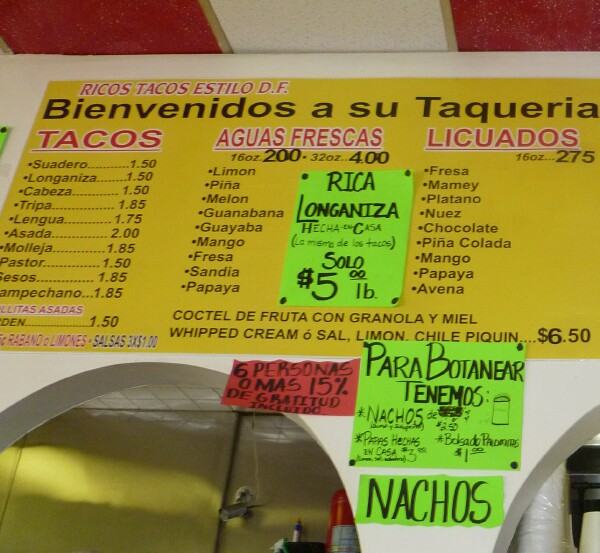 RICOS TACOS ESTILO D.F.
Bienvenidos a su Taqueria
TACOS
•Suadero............1.50
•Longaniza.......1.50
•Cabeza............1.50
•Tripa...............1.85
•Lengua...........1.75
•Asada.............2.00
•Molleja............1.85
Pastor...............1.50
Sesos...............1.85
ampechano...1.85
OLLITAS ASADAS
RDEN...............1.50
RABANO o LIMONES • SALSAS 3X$1.00
AGUAS FRESCAS
16oz. 200 • 32oz.. 4.00
•Limon
•Piña
•Melon
•Guanabana
•Guayaba
•Mango
•Fresa
•Sandia
•Papaya
RICA
LONGANIZA
HECHA EN CASA
(La misma de los tacos)
SOLO
$5.00 lb.
LICUADOS
16oz... 275
•Fresa
•Mamey
•Platano
•Nuez
•Chocolate
•Piña Colada
•Mango
•Papaya
•Avena
COCTEL DE FRUTA CON GRANOLA Y MIEL
WHIPPED CREAM ó SAL, LIMON, CHILE PIQUIN....$6.50
6 PERSONAS
O MAS 15%
DE GRATITUD
INCLUIDO
PARA BOTANEAR
TENEMOS:
*NACHOS de
$2.50
*PAPAS HECHAS
EN CASA $3
*Bolsa de PALOMITAS
$1.00
NACHOS